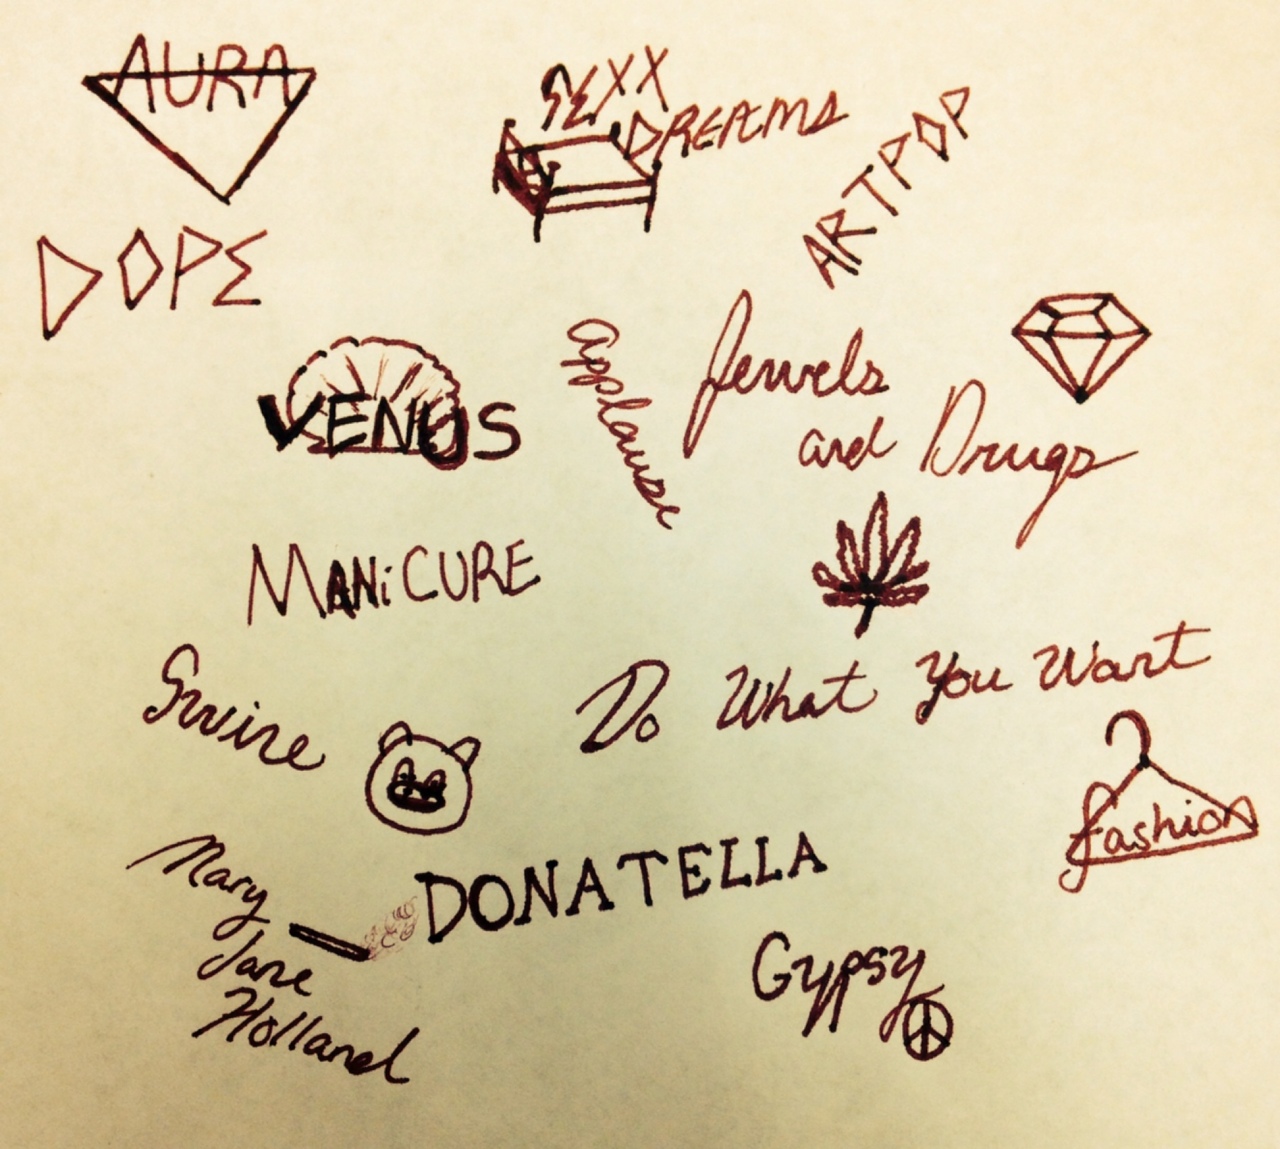 AURA
SEXX
DREAMS
ARTPOP
DOPE
VENUS
applause
Jewels
and Drugs
MANiCURE
Swine
Do What You Want
fashion
Mary
Jane
Holland
DONATELLA
Gypsy